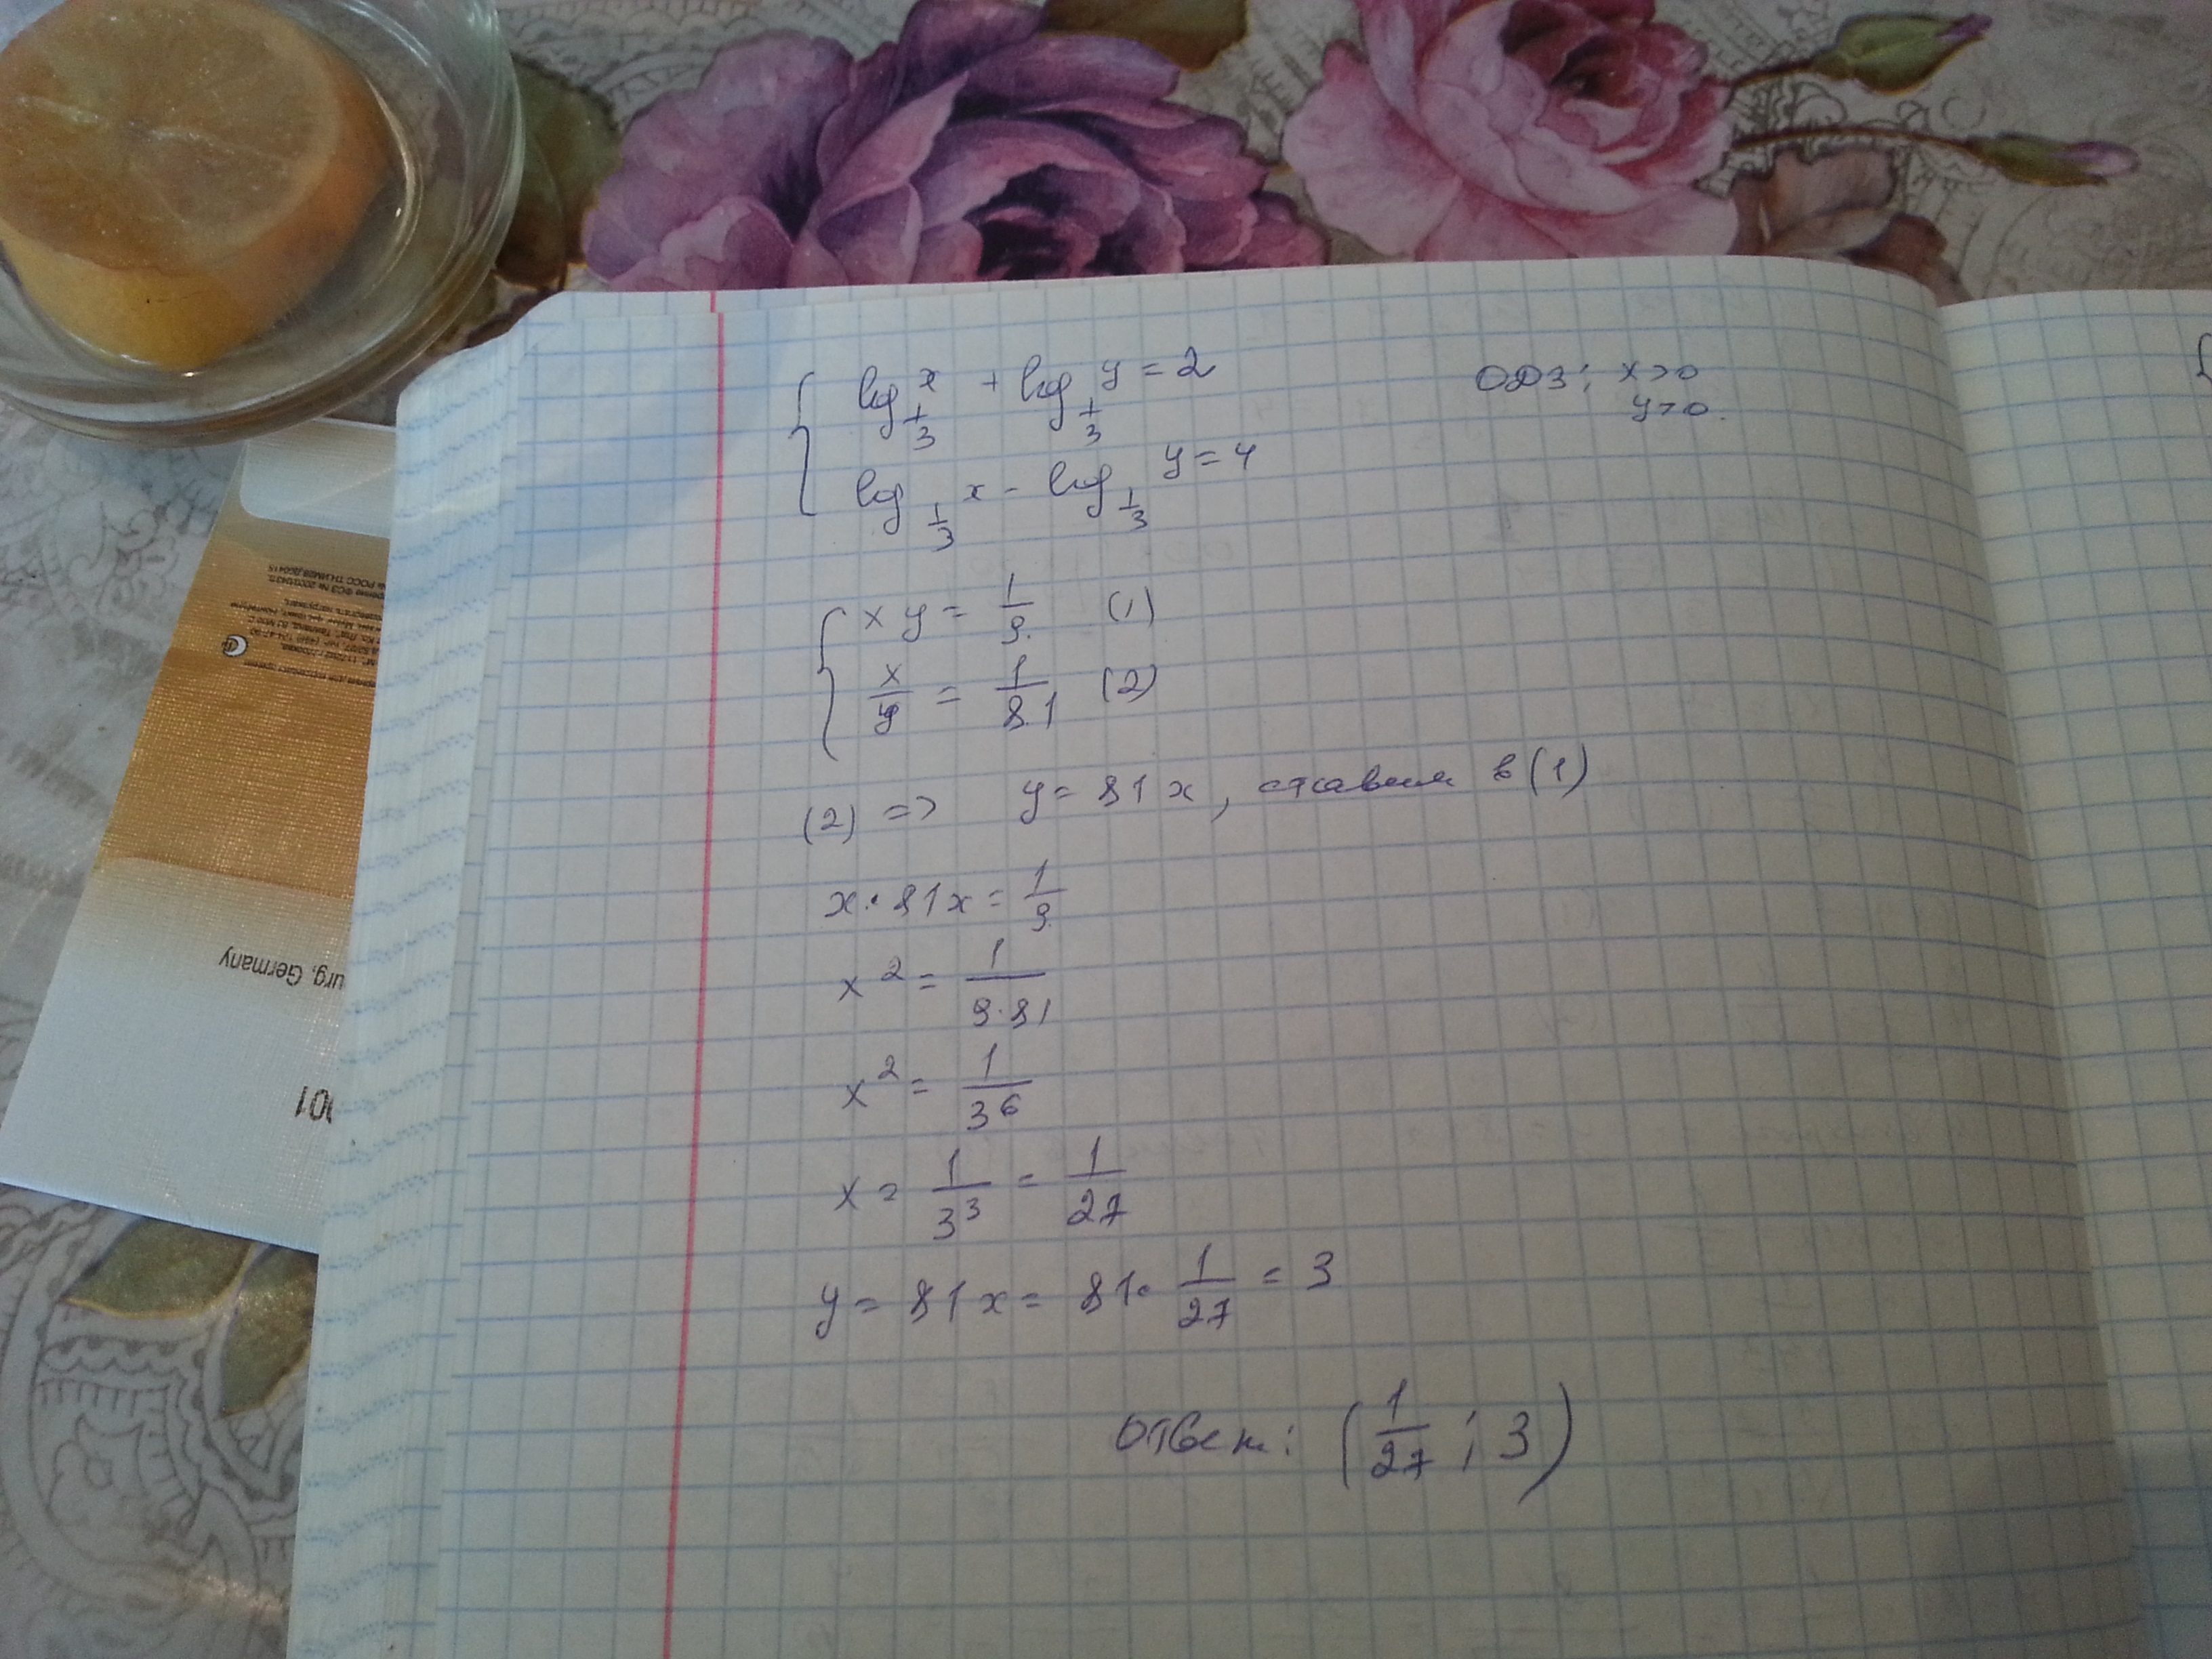 log_{1/3} x + log_{1/3} y = 2
ОДЗ: x > 0
y > 0.
log_{1/3} x - log_{1/3} y = 4
x y = 1/9 (1)
x/y = 1/81 (2)
(2) => y = 81x, ставим в (1)
x · 81x = 1/9
x² = 1/(9·81)
x² = 1/3⁶
x = 1/3³ = 1/27
y = 81x = 81 · 1/27 = 3
Ответ: (1/27 ; 3)
urg, Germany